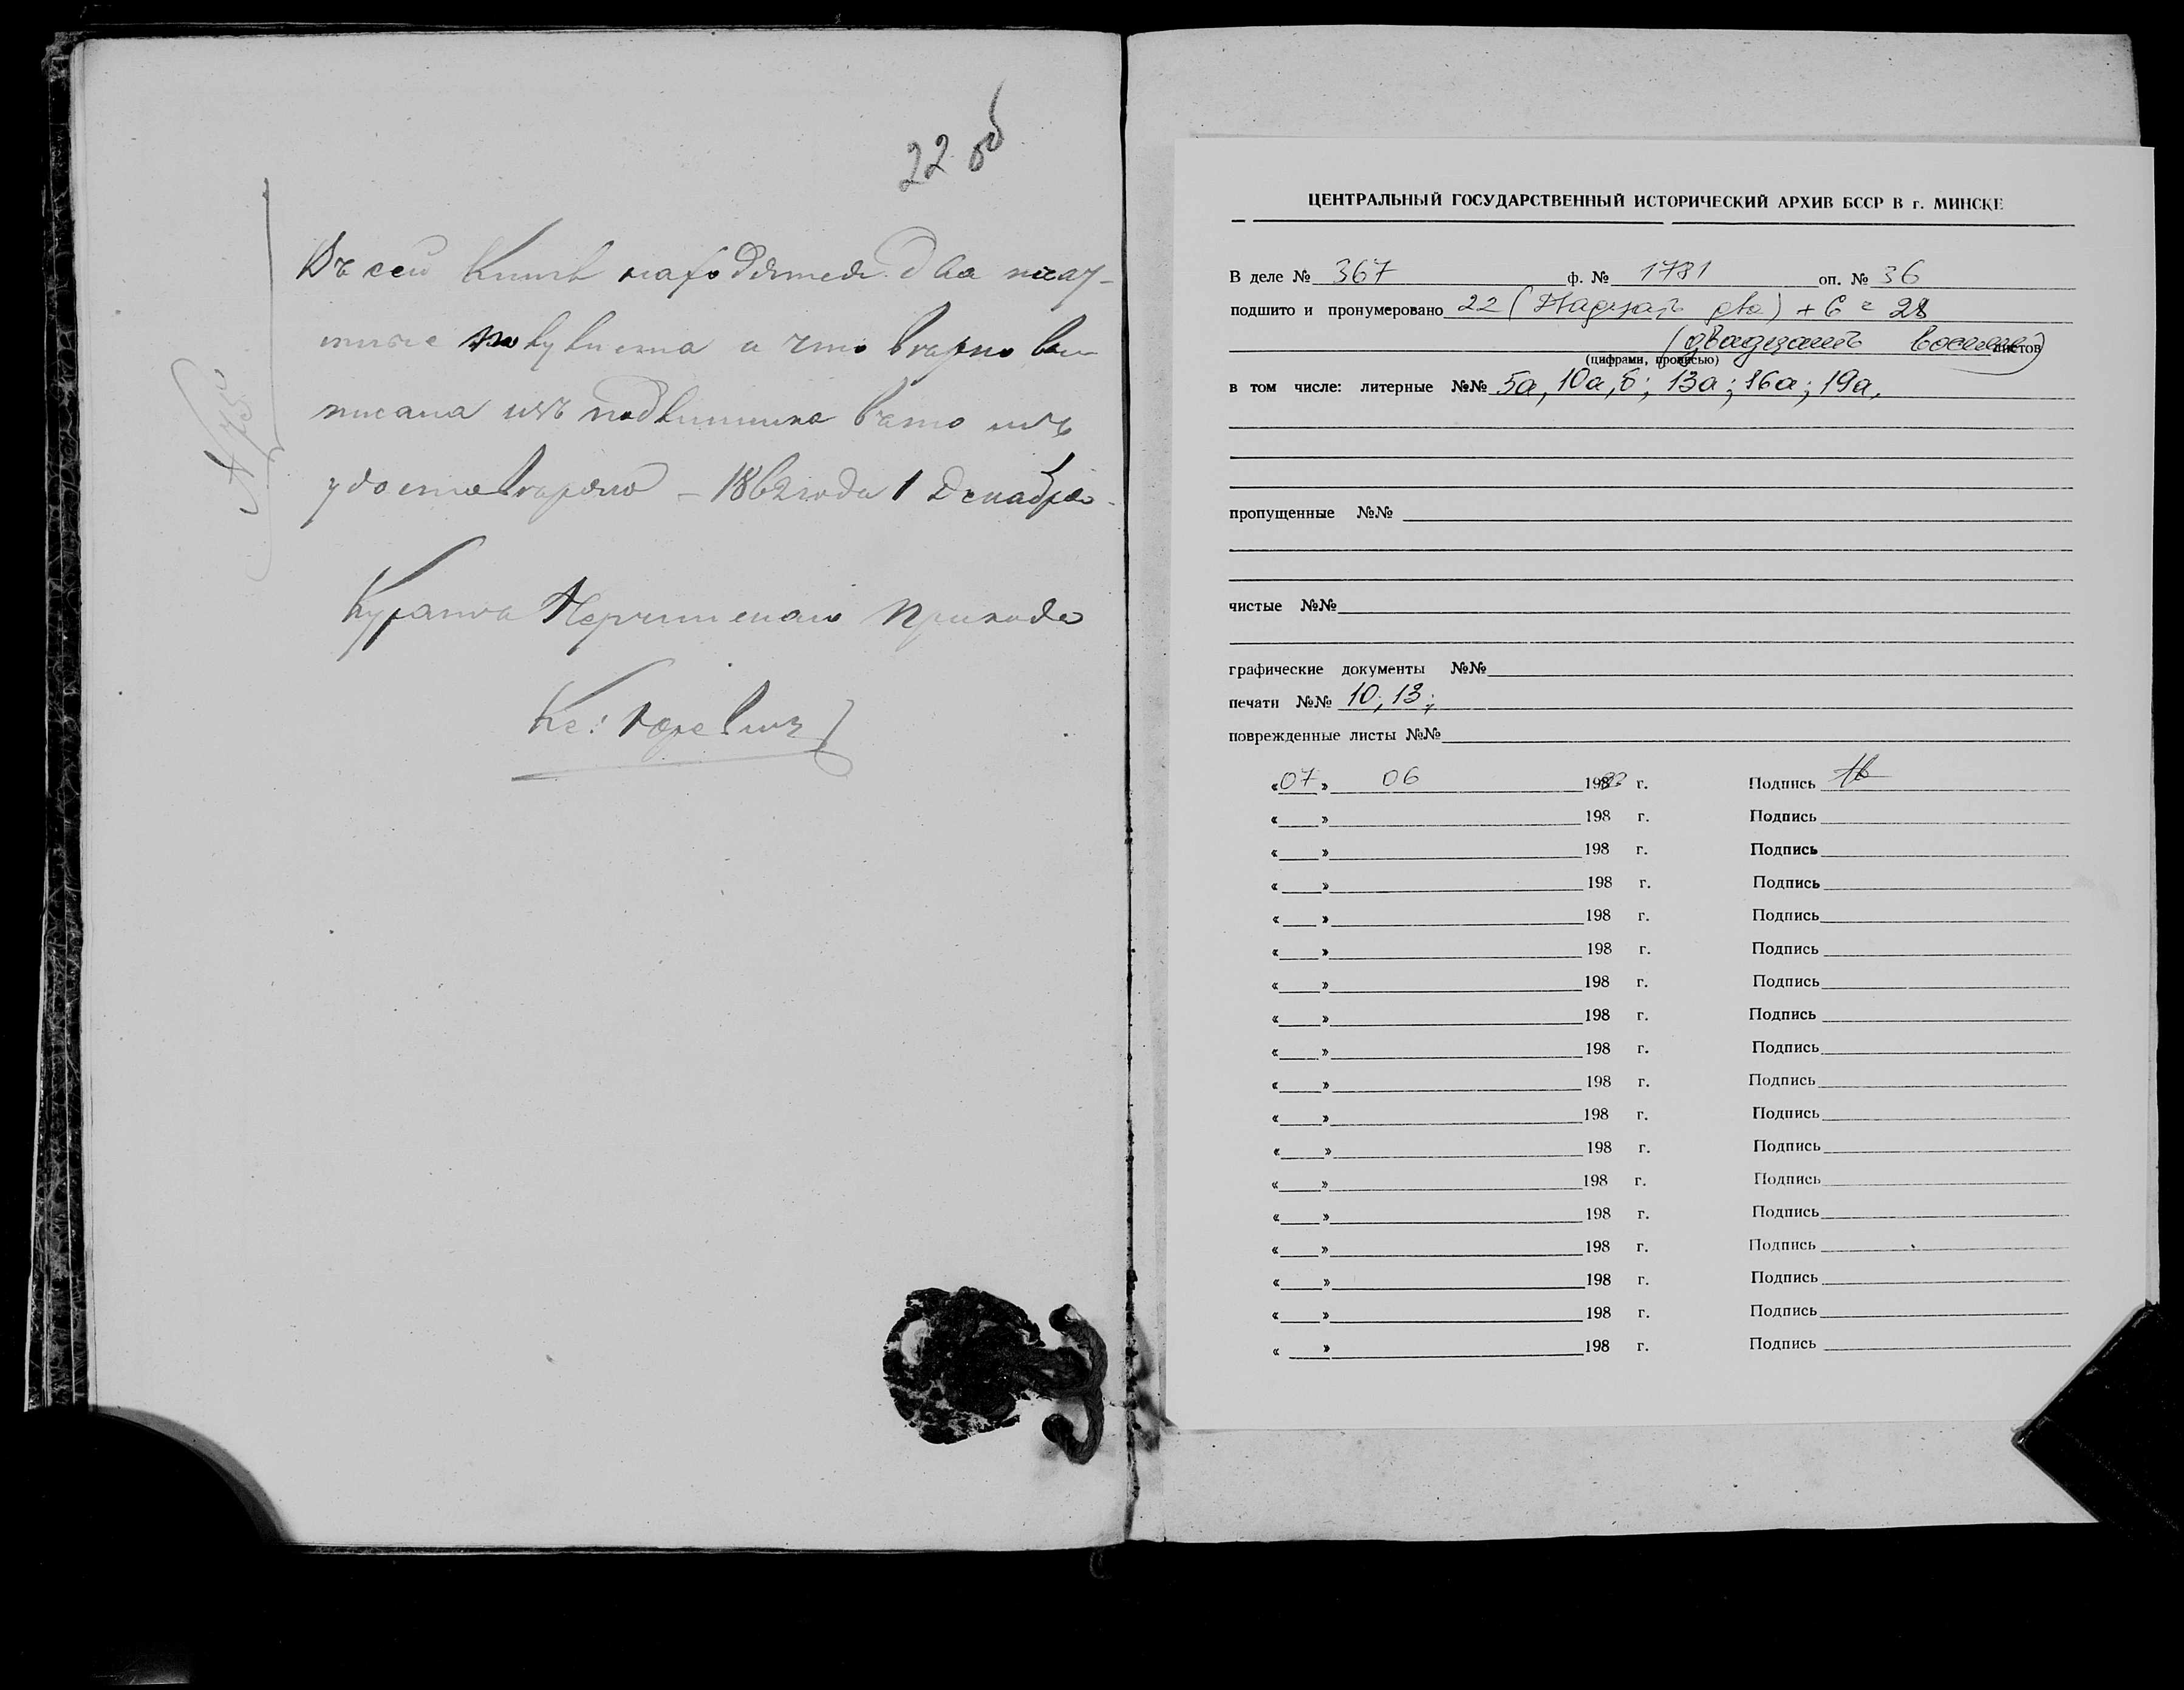 22 об
Въ сей Книгѣ находятся два
и что
писана изъ подлинника въ томъ
удостоверяю – 1862 года 1 Декабря
Куратъ прихода
Кс: Юревичъ
ЦЕНТРАЛЬНЫЙ ГОСУДАРСТВЕННЫЙ ИСТОРИЧЕСКИЙ АРХИВ БССР В г. МИНСКЕ
В деле № 367 ф. № 1781 оп. № 36
подшито и пронумеровано 22 (двадцать два) + 6 = 28
(двадцать восемь) листов
(цифрами, прописью)
в том числе: литерные №№ 5а, 10а,б; 13а; 16а; 19а.
пропущенные №№
чистые №№
графические документы №№
печати №№ 10; 13;
поврежденные листы №№
«07» 06 198 г. Подпись
« » 198 г. Подпись
« » 198 г. Подпись
« » 198 г. Подпись
« » 198 г. Подпись
« » 198 г. Подпись
« » 198 г. Подпись
« » 198 г. Подпись
« » 198 г. Подпись
« » 198 г. Подпись
« » 198 г. Подпись
« » 198 г. Подпись
« » 198 г. Подпись
« » 198 г. Подпись
« » 198 г. Подпись
« » 198 г. Подпись
« » 198 г. Подпись
« » 198 г. Подпись